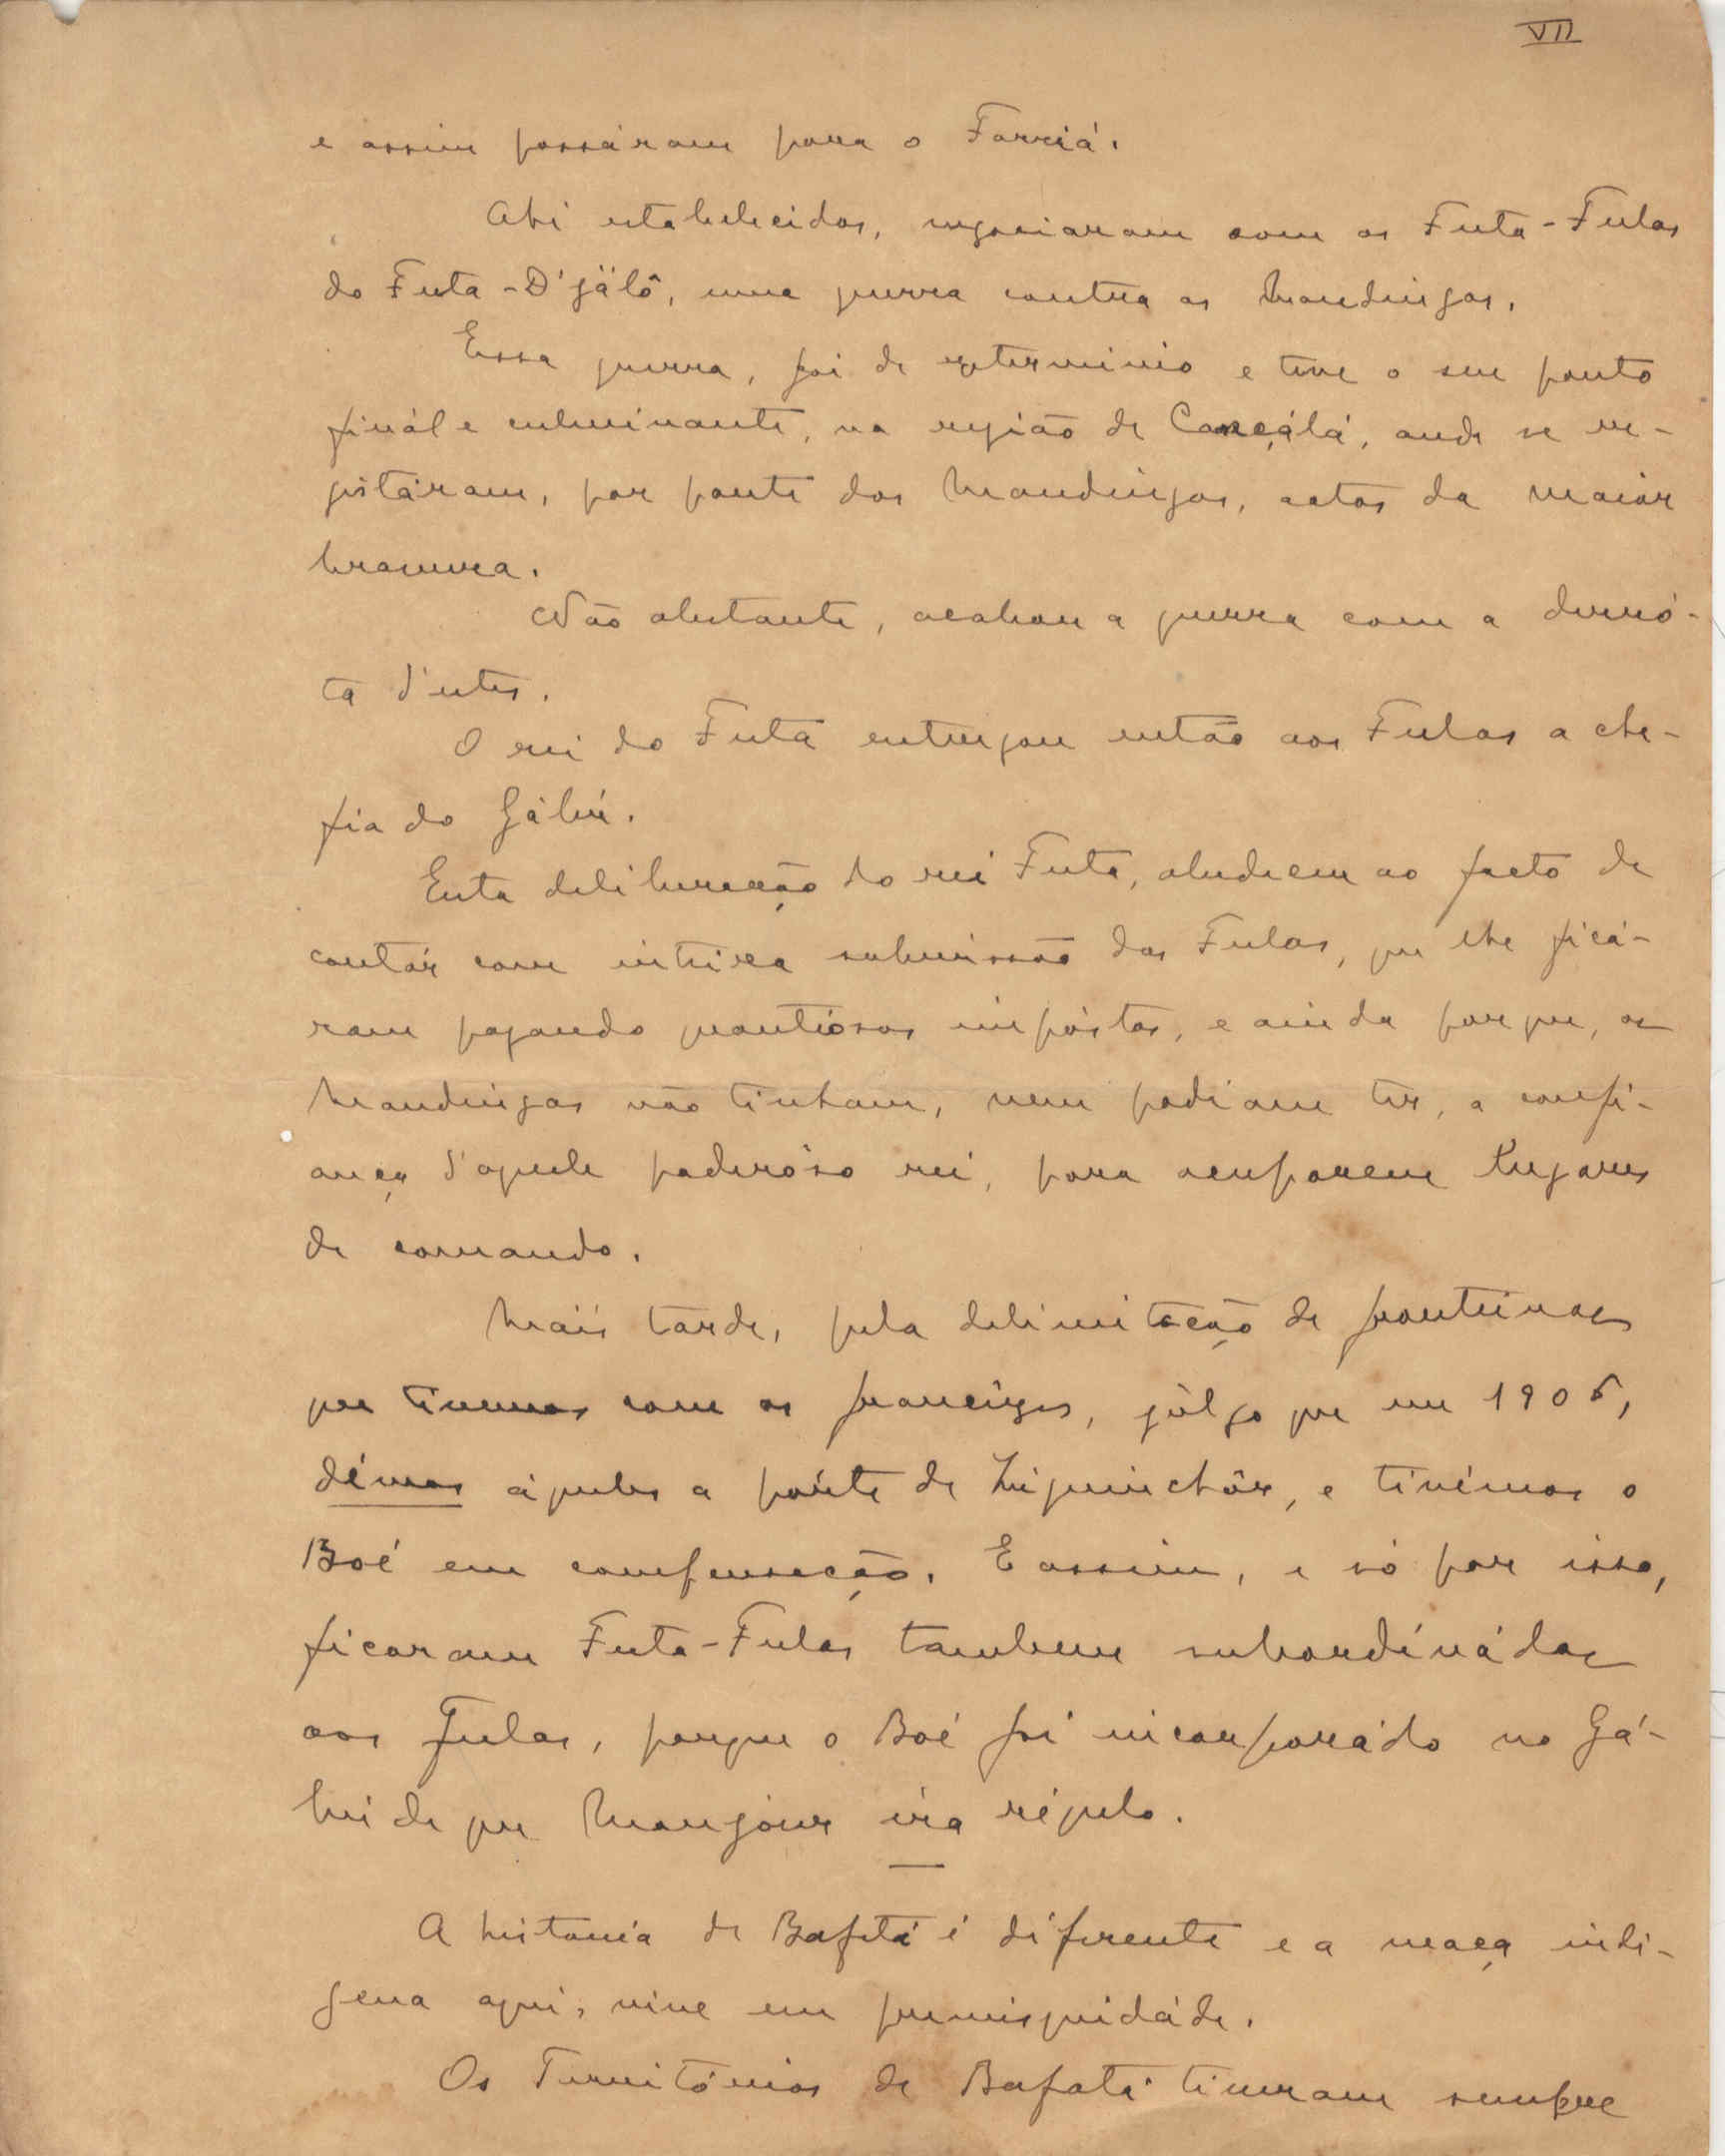 VII
e assim passáram para o Forriá.
Ahi estabelecidos, negociaram com os Futa-Fulas
do Futa-D'jálô, uma guerra contra os Mandingas.
Essa guerra, foi de exterminio e teve o seu ponto
finál e culminante, na região de Cançálá, onde se re-
gistáram, por parte dos Mandingas, actos da maiór
bravura.
Não obstante, acabou a guerra com a derró-
ta d'estes.
O rei do Futa entregou então aos Fulas a che-
fia do Gábú.
Esta deliberação do rei Futa, aludiem ao facto de
contár com inteira submissão dos Fulas, que lhe ficá-
ram pagando quantiósos impóstos, e ainda porque, os
Mandingas não tinham, nem podiam ter, a confi-
ança d'aquele poderôso rei, para ocuparem lugares
de comando.
Mais tarde, pela delimitação de fronteiras
que tivemos com os francêzes, júlgo que em 1905,
démos áqueles a parte de Ziguinchôr, e tivémos o
Boé em compensação. E assim, e só por isso,
ficaram Futa-Fulas tambem subordinádos
aos Fulas, porque o Boé foi incorporádo no Gá-
bú de que Monjour éra régulo.
A historia de Bafatá é diferente e a raça indi-
gena aqui, vive em promisquidáde.
Os Territórios de Bafatá tiveram sempre